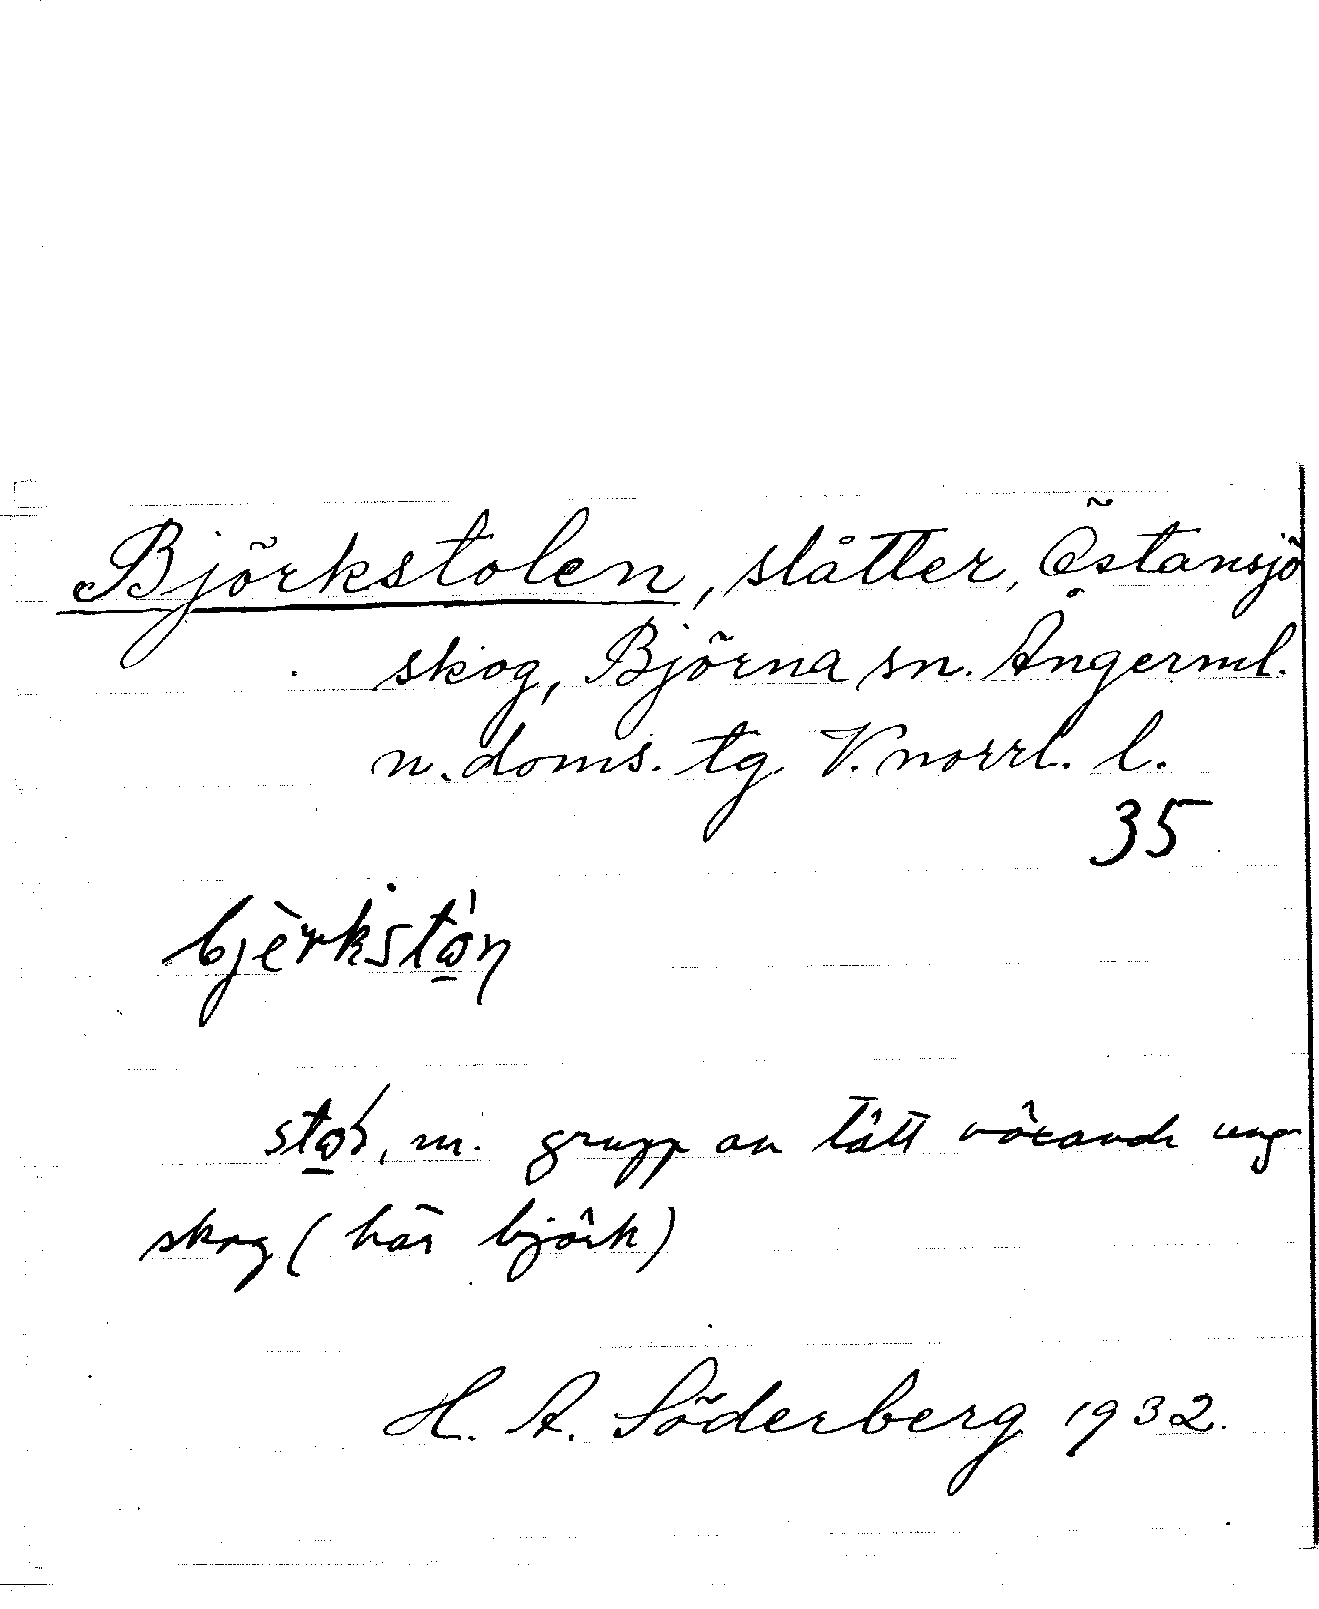 Björkstolen, slåtter, Östansjö
skog, Björna sn. Ångerml.
n. doms. tg V. norrl. l.
35
bjèrkstó̱n
sto̱l, m. grupp av tätt växande ung
skog (här björk)
H. A. Söderberg 1932.